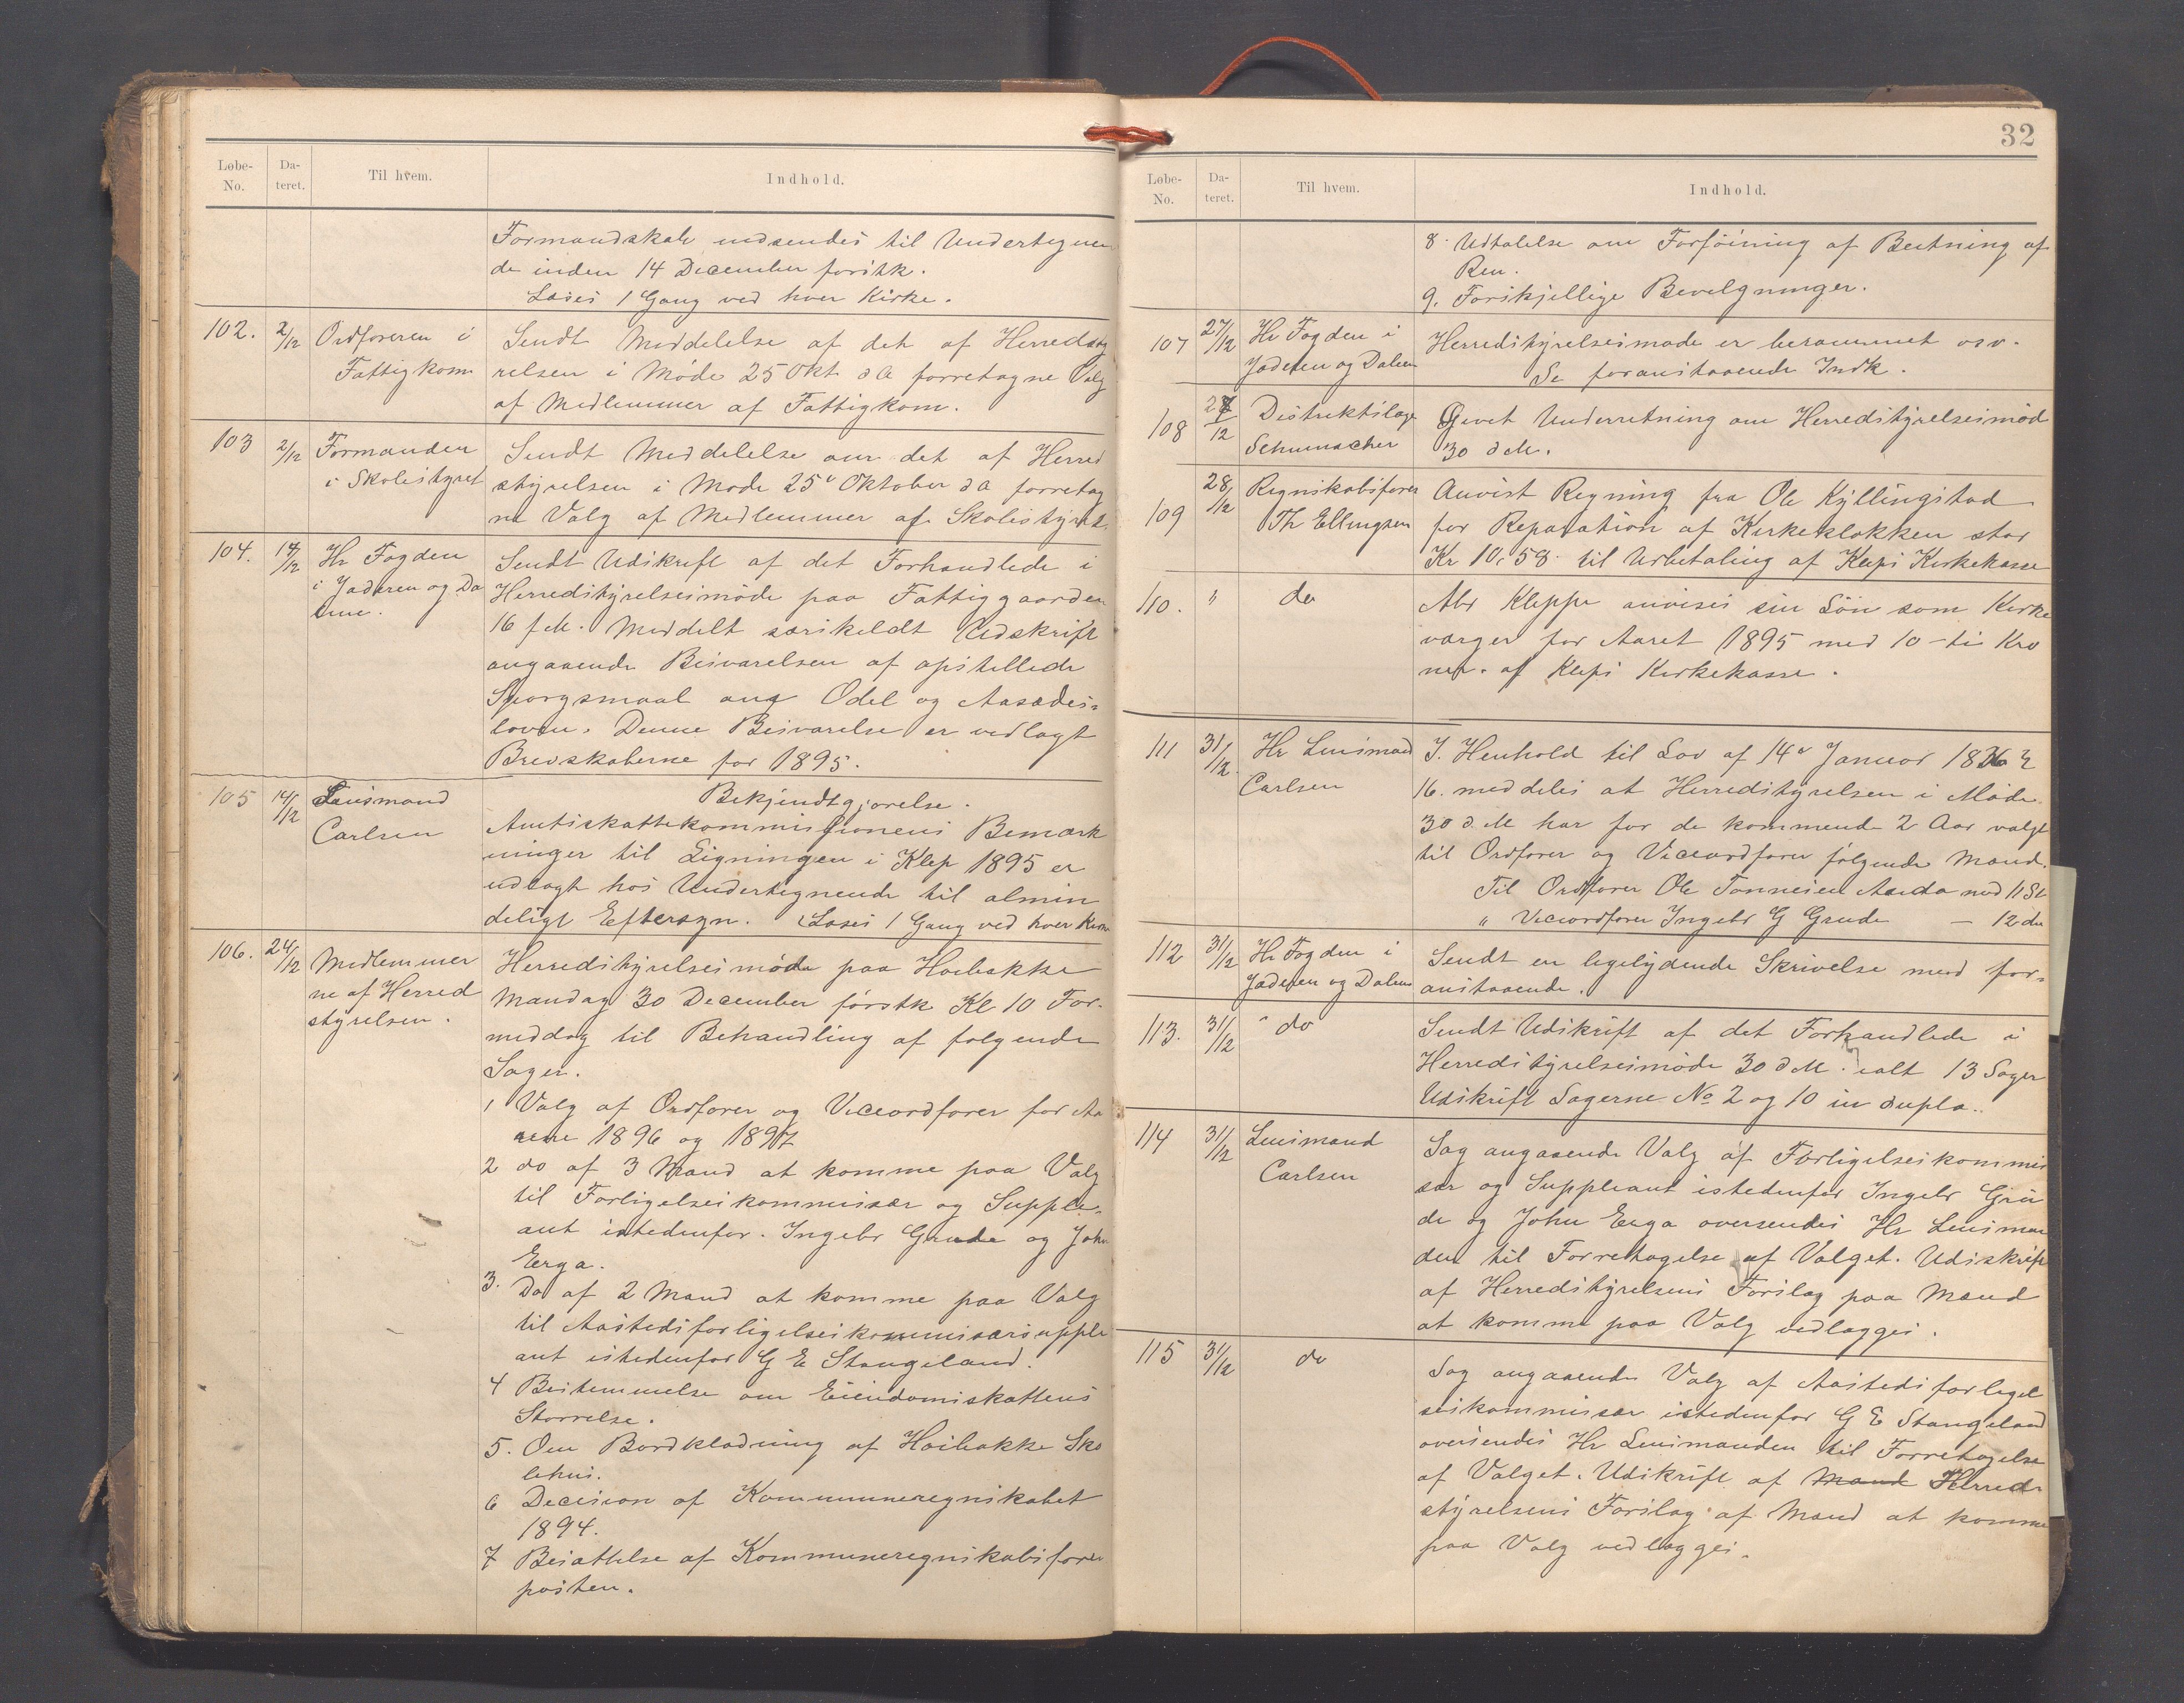 Løbe-No. Dateret. Til hvem. Indhold.
Formandskab indsendes til Undertegnen
de inden 14 December førstk.
Læses 1 Gang ved hver Kirke.
102. 2/12 Ordføreren i Fattigkom
Sendt Meddelelse af det af Herredsty
relsen i Møde 25 Okt d A foretagne Valg
af Medlemmer af Fattigkom.
103 2/12 Formanden i Skolestyret
Sendt Meddelelse om det af Herred
styrelsen i Møde 25de Oktober d A forretag
ne Valg af Medlemmer af Skolestyret
104. 14/12 Hr Fogden i Jæderen og Da lene.
Sendt Udskrift af det Forhandlede i
Herredstyrelsesmøde paa Fattiggaarden
16 f M. Meddelt særskeldt Udskrift
angaaende Besvarelsen af opstellede
Sporgsmaal ang Odel og Aasædes=
loven. Denne Besvarelse er vedlagt
Brevskaberne for 1895.
105 14/12 Lensmand Carlsen
Bekjendtgjørelse.
Amtsskattekommissionens Bemærk
ninger til Ligningen i Klep 1895 er
udlagt hos Undertegnende til almin
deligt Eftersyn. Læses 1 Gang ved hver Kirke
106. 24/12 Medlemmer ne af Herred styrelsen.
Herredstyrelsesmøde paa Hoibakke
Mandag 30 December førstk Kl 10 For-
meddag til Behandling af folgende
Sager.
1 Valg af Ordfører og Viceordfører for Aa
rene 1896 og 1897
2 do af 3 Mand at komme paa Valg
til Forligelseskommisær og Supple-
ant istedenfor. Ingebr Grude og John
Erga.
3. Do af 2 Mand at komme paa Valg
til Aastedsforligelseskommisærsupple
ant istedenfor G E Stangeland.
4 Bestemmelse om Eiendomsskattens
Størrelse.
5. Om Bordklædning af Hoibakke Sko
lehus.
6 Decision af Kommuneregnskabet
1894.
7 Besættelse af Kommuneregnskabsfører
posten.
32
Løbe-No. Dateret. Til hvem. Indhold.
8. Udtalelse om Forføining af Beitning af
Ren.
9. Forskjellige Bevilgninger.
107 27/12 Hr Fogden i Jæderen og Dalene
Herredstyrelsesmøde er berammet osv.
Se foranstaaende Indk.
108 28/12 Distriktslæge Schumacher
Givet Underretning om Herredstyrelsesmød
30 d M.
109 28/12 Regnskabsfører Th Ellingsen
Anvist Regning fra Ole Kyllingstad
for Reparation af Kirkeklokken stor
Kr 10.58 til Udbetaling af Kleps Kirkekasse
110. " do
Abr Kleppe anvises sin Løn som Kirke
værger for Aaret 1895 med 10 - ti Kro
ner. af Kleps Kirkekasse.
111 31/12. Hr Lensmand Carlsen
I. Henhold til Lov af 14de Januar 18 §
16. meddeles at Herredstyrelsen i Møde
30 d. M har for de kommende 2 Aar valgt
til Ordfører og Viceordfører følgende Mænd.
Til Ordfører Ole Tønnesen Anda med 11 St
" Viceordfører Ingebr G Grude — 12 do
112 31/12 Hr Fogden i Jæderen og Dalene
Sendt en ligelydende Skrivelse med for=
anstaaende.
113. 31/12 " do
Sendt Udskrift af det Forhandlede i
Herredstyrelsesmøde 30 d M. ialt 13 Sager
Udskrift Sagerne No 2 og 10 in dupla.
114 31/12 Lensmand Carlsen
Sag angaaende Valg af Forligelseskommis
sær og Suppleant istedenfor Ingebr Gru
de og John Erga oversendes Hr Lensman
den til Forretagelse af Valget. Udskrift
af Herredstyrelsens Forslag paa Mænd
at komme paa Valg vedlægges.
115 31/12 do
Sag angaaende Valg af Aastedsforligel
seskommisær istedenfor G E Stangeland
oversendes Hr Lensmanden til Forretagelse
af Valget. Udskrift af Mænd Herred-
styrelsens Forslag af Mænd at komme
paa Valg vedlægges.